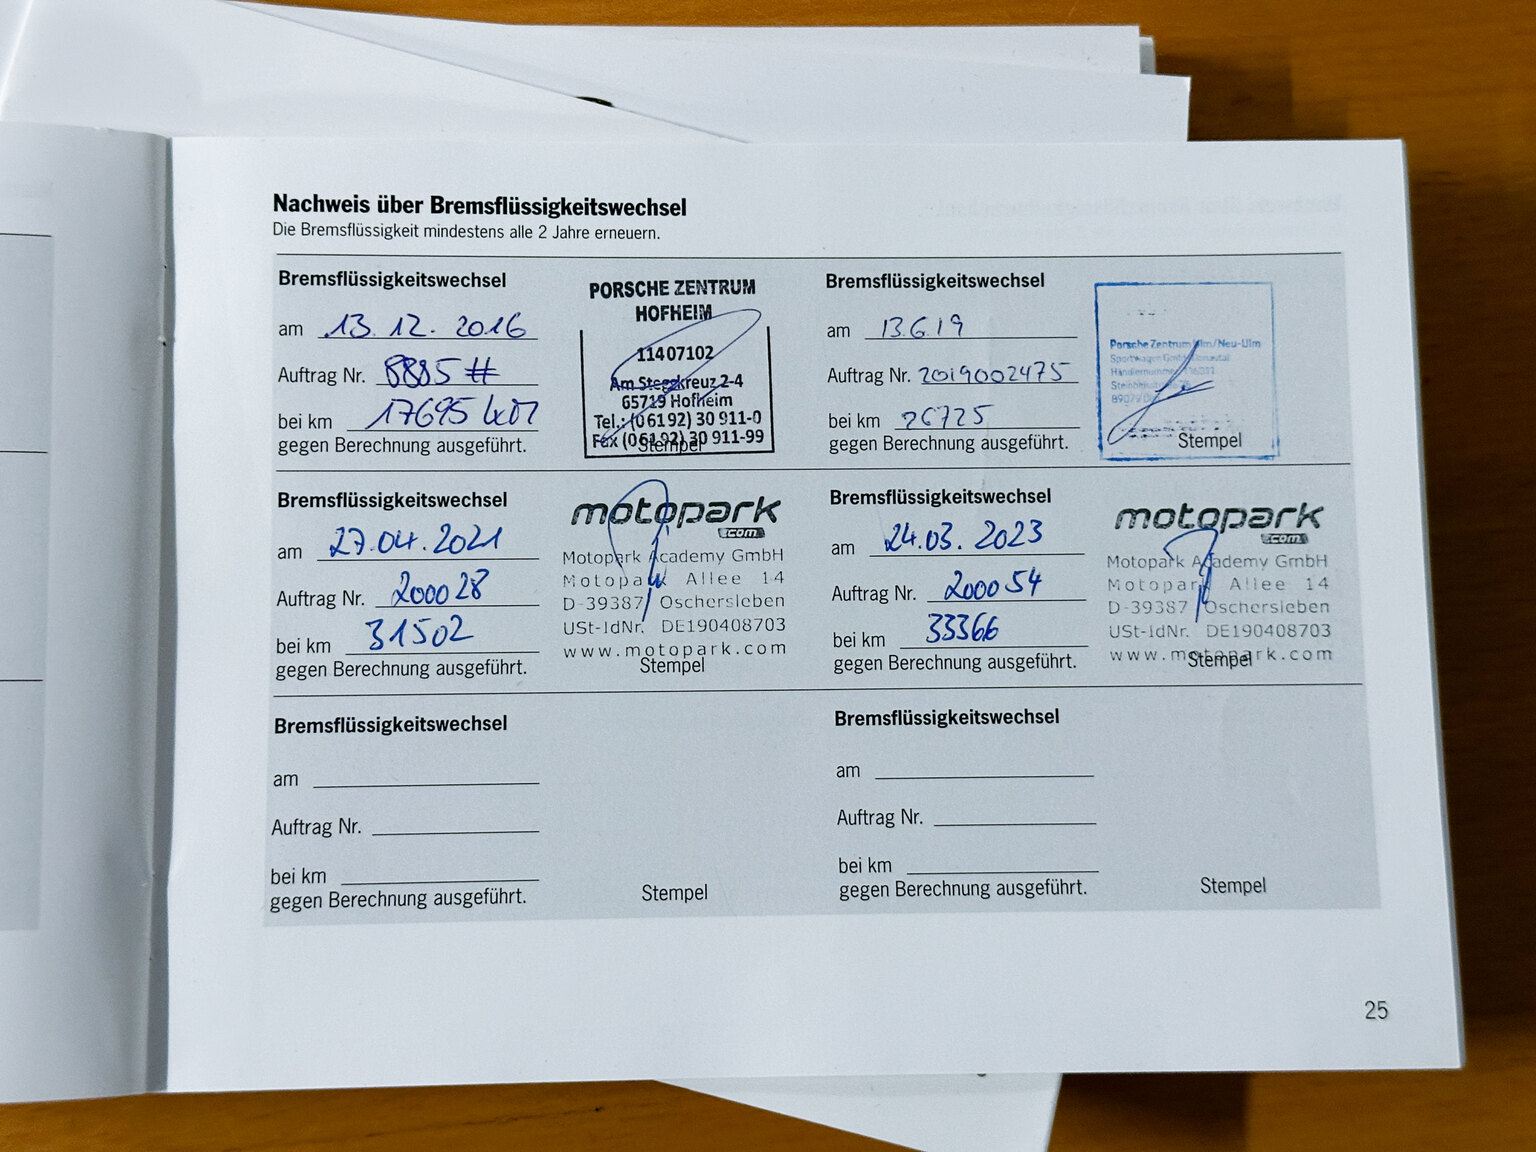 Nachweis über Bremsflüssigkeitswechsel
Die Bremsflüssigkeit mindestens alle 2 Jahre erneuern.
Bremsflüssigkeitswechsel
am 13.12.2016
Auftrag Nr. 8885 #
bei km 17695 km
gegen Berechnung ausgeführt.
PORSCHE ZENTRUM
HOFHEIM
11407102
Am Stegskreuz 2-4
65719 Hofheim
Tel.: (06192) 30 911-0
Fax (06192) 30 911-99
Stempel
Bremsflüssigkeitswechsel
am 13.6.19
Auftrag Nr. 2019002475
bei km 26725
gegen Berechnung ausgeführt.
Porsche Zentrum Ulm/Neu-Ulm
Stempel
Bremsflüssigkeitswechsel
am 27.04.2021
Auftrag Nr. 200028
bei km 31502
gegen Berechnung ausgeführt.
motopark
.com
Motopark Academy GmbH
Motopark Allee 14
D-39387 Oschersleben
USt-IdNr. DE190408703
www.motopark.com
Stempel
Bremsflüssigkeitswechsel
am 24.03.2023
Auftrag Nr. 200054
bei km 33366
gegen Berechnung ausgeführt.
motopark
.com
Motopark Academy GmbH
Motopark Allee 14
D-39387 Oschersleben
USt-IdNr. DE190408703
www.motopark.com
Stempel
Bremsflüssigkeitswechsel
am
Auftrag Nr.
bei km
gegen Berechnung ausgeführt.
Stempel
Bremsflüssigkeitswechsel
am
Auftrag Nr.
bei km
gegen Berechnung ausgeführt.
Stempel
25